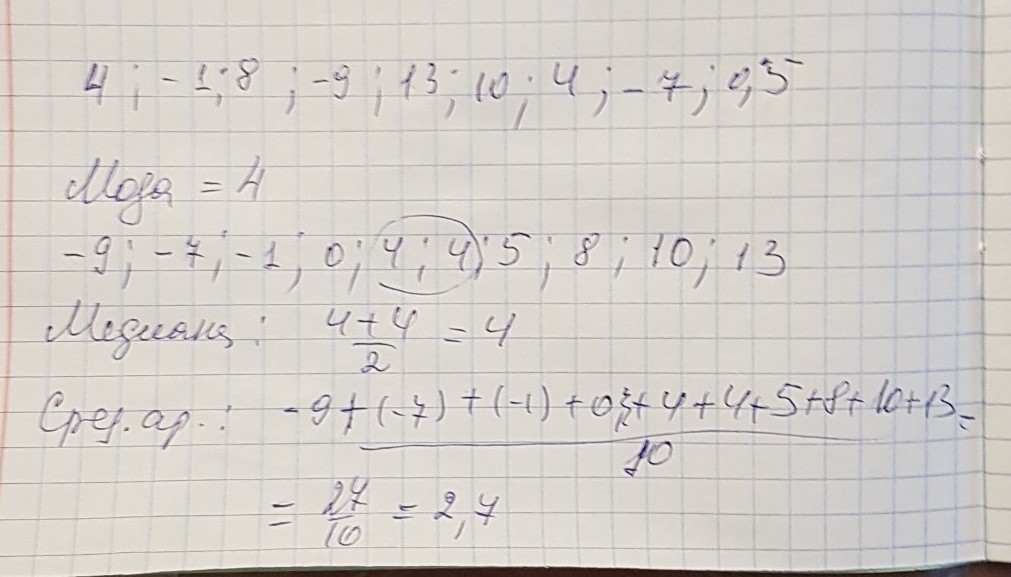 4 ; -1 ; 8 ; -9 ; 13 ; 10 ; 4 ; -7 ; 0,5
Мода = 4
-9 ; -7 ; -1 ; 0 ; 4 ; 4 ; 5 ; 8 ; 10 ; 13
Медиана : 4+4/2 = 4
Сред. ар. : -9+(-7)+(-1)+0+4+4+5+8+10+13/10 =
= 27/10 = 2,7